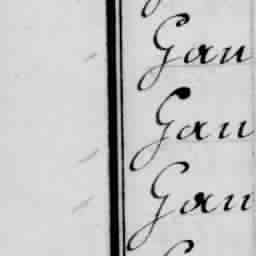 Gau
Gau
Gau